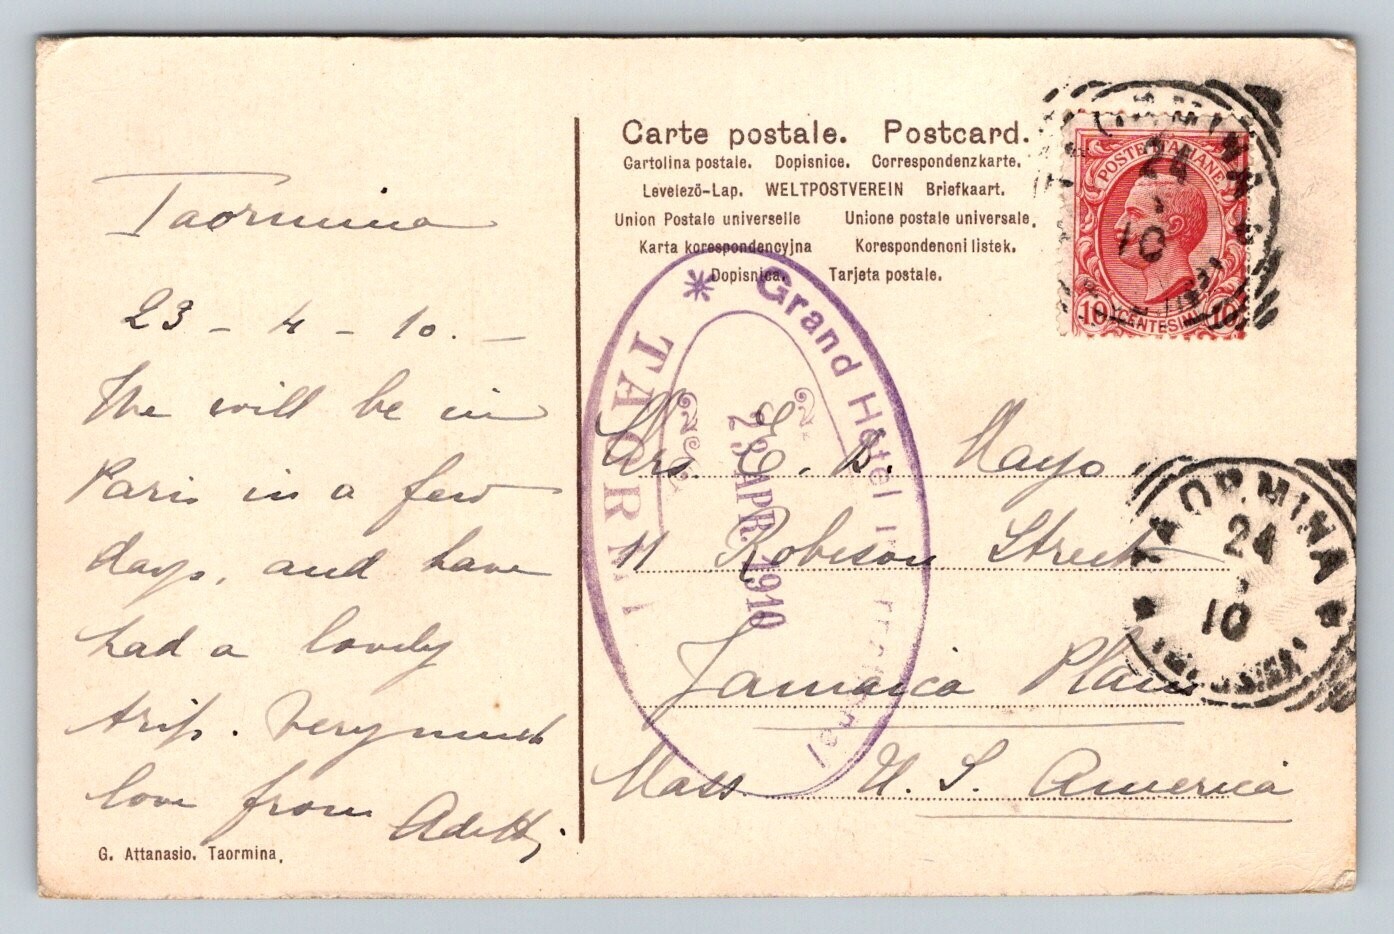 Taormina
23 - 4 - 10. -
We will be in
Paris in a few
days, and have
had a lovely
trip. Very much
love from
G. Attanasio. Taormina.
Carte postale. Postcard.
Cartolina postale. Dopisnice. Correspondenzkarte.
Levelező-Lap. WELTPOSTVEREIN Briefkaart.
Union Postale universelle Unione postale universale.
Karta korespondencyjna Korespondencni listek.
Dopisnica. Tarjeta postale.
POSTE ITALIANE
10 CENTESIMI 10
TAORMINA
24
10
* Grand Hôtel International
TAORMI
23 APR. 1910
Mrs. E. B. Mayo
11 Robeson Street
Jamaica Plain
Mass. U. S. America
TAORMINA
24
10